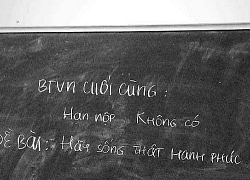 BTVN CUỐI CÙNG:
Hạn nộp KHÔNG CÓ
ĐỀ BÀI: HÃY SỐNG THẬT HẠNH PHÚC